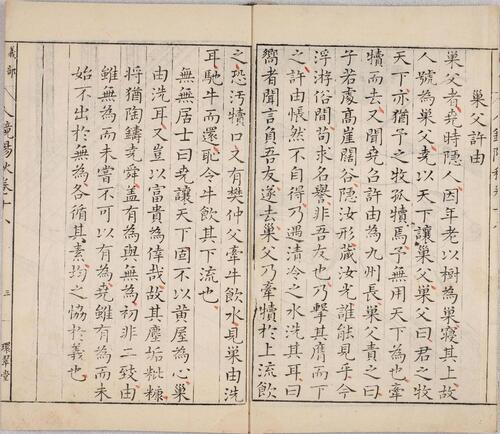 巢父許由
巢父者堯時隱人因年老以樹為巢寢其上故
人號為巢父堯以天下讓巢父巢父曰君之牧
天下亦猶予之牧孤犢焉予無用天下為也牽
犢而去又聞堯召許由為九州長巢父責之曰
子若處高崖闊谷隱汝形蔵汝光誰能見乎今
浮游俗間苟求名譽非吾友也乃擊其膺而下
之許由悵然不自得乃遇清泠之水洗其耳曰
嚮者聞言負吾友遂去巢父乃牽犢於上流飲
之恐污犢口又有樊仲父牽牛飲水見巢由洗
耳馳牛而還恥令牛飲其下流也
無無居士曰堯讓天下固不以黃屋為心巢
由洗耳又豈以富貴為偉哉故其塵垢粃糠
將猶陶鑄堯舜蓋有為與無為初非二致由
雖無為而未嘗不可以有為堯雖有為而未
始不出於無為各循其素均之恊於義也
義部 人鏡陽秋卷十八 三 環翠堂